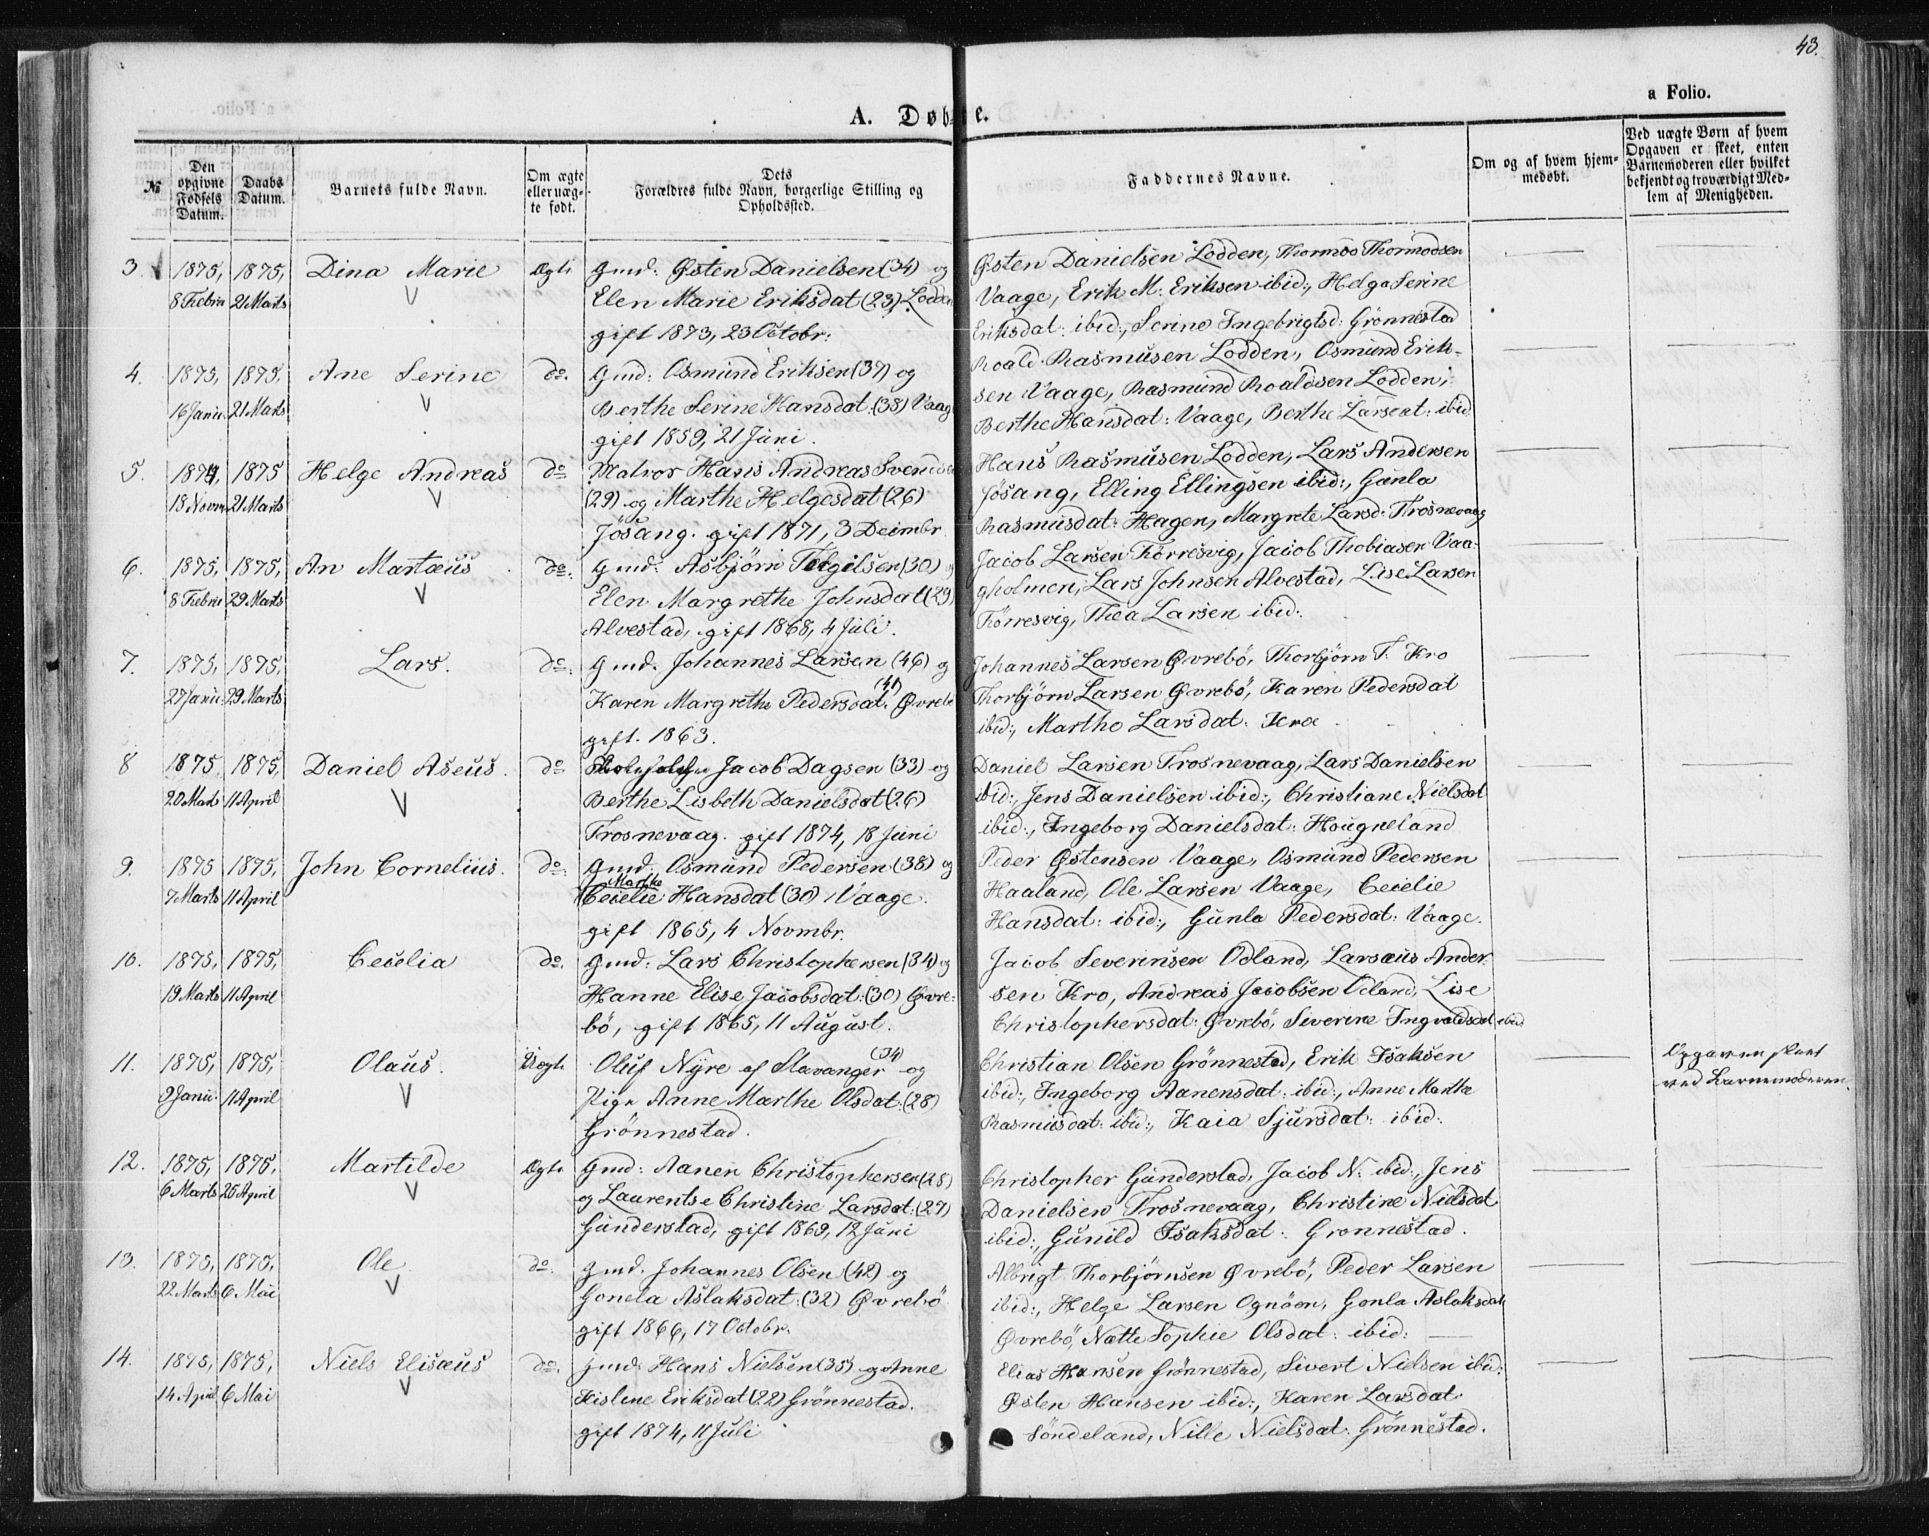 43.
a Folio.
A. Døbte.
№
Den opgivne Fødsels Datum.
Daabs Datum.
Barnets fulde Navn.
Om ægte eller uægte født.
Dets Forældres fulde Navn, borgerlige Stilling og Opholdssted.
Faddernes Navne.
Om og af hvem hjemmedøbt.
Ved uægte Børn af hvem Opgaven er skeet, enten Barnemoderen eller hvilket bekjendt og troværdigt Medlem af Menigheden.
3 1875, 1875, Dina Marie Ægte Gmd: Østen Danielsen (34) og
8 Febru 21 Marts Elen Marie Eriksdat (23) Lodden
gift 1873, 23 Octobr:
Østen Danielsen Lodden, Thormoo Thormodsen
Vaage, Erik M. Eriksen ibid:, Helga Serine
Eriksdat: ibid:, Serine Ingebrigtsd: Grönnestad
4. 1875, 1875, Ane Serine do. Gmd: Osmund Eriksen (37) og
16 Janu 21 Marts Berthe Serine Hansdat: (38) Vaag
gift 1859, 21 Juni.
Roald Rasmusen Lodden, Osmund Erik-
sen Vaage, Rasmund Roaldsen Lodden,
Berthe Hansdat: Vaage, Berthe Larsdat: ibid
5. 1874, 1875 Helge Andreas do Matros Hans Andreas Svendsen
18 Novm 21 Marts (29) og Marthe Helgesdat (26)
Jösang. gift 1871, 3 Decimbr
Hans Rasmusen Lodden, Lars Andersen
Jösang, Elling Ellingsen ibid:, Gunla
Rasmusdat: Hagen, Margrete Larsd: Trosnevaag
6. 1875, 1875, An Martæus do: Gmd: Asbjörn Teigilsen (30) og
8 Febru 29 Marts Elen Margrethe Johnsdat (29)
Alvestad, gift 1868, 4 Juli.
Jacob Larsen Förresvig, Jacob Thobiasen Vaa-
gholmen, Lars Johnsen Alvestad, Lise Larsen
Förresvig, Thea Larsen ibid:
7. 1875, 1875, Lars. do: Gmd. Johannes Larsen (46) og
27 Janu: 29 Marts Karen Margrethe Pedersdat (41) Øvrebö
gift. 1863.
Johannes Larsen Øvrebö, Thorbjörn T. Kro
Thorbjörn Larsen Øvrebö, Karen Pedersdat
ibid:, Martho Larsdat:
8 1875, 1875, Daniel Aseus. do Jacob Dagsen (33) og
20 Marts 11 April Berthe Lisbeth Danielsdat (26)
Trosnevaag. gift 1874, 18 Juni
Daniel Larsen Trosnevaag, Lars Danielsen
ibid:, Jens Danielsen ibid:, Christiane Nielsdat
ibid:, Ingeborg Danielsdat: Hougneland
9. 1875 1875, John Cornelius. do: Gmd. Osmund Pedersen (38) og
7 Marts 11 April Marthe Cecelie Hansdat (30) Vaage.
gift 1865, 4 Novmbr.
Peder Østensen Vaage, Osmund Pedersen
Haaland, Ole Larsen Vaage, Cecelie
Hansdat: ibid:, Gunla Pedersdat: Vaage.
10. 1875, 1875, Cecelia do. Gmd: Lars Christophersen (34) og
19 Marts 11 April Hanne Elise Jacobsdat: (30) Øvre-
bö, gift 1865, 11 August.
Jacob Severinsen Odland, Larsæus Ander-
sen Kro, Andreas Jacobsen Odland, Lise
Christophersdat: Øvrebö, Siverine Ingvaldsdat ibid
11. 1875, 1875, Olaus. Uægte Oluf Nyre af Stavanger (34) og
9 Janu: 11 April Pige Anne Marthe Olsdat: (28)
Grönnestad.
Christian Olsen Grönnestad, Erik Isaksen
ibid:, Ingeborg Aanensdat: ibid:, Anne Marthe
Rasmusdat: ibid:, Kaia Sjursdat: ibid:
Opgaven skeet
ved Barnemoderen.
12. 1875, 1875, Martilde Ægte Gmd: Aanen Christophersen (28)
6 Marts 25 April og Laurentse Christine Larsdat: (27)
Gunderstad, gift 1869, 12 Juni
Christopher Gunderstad, Jacob N. ibid:, Jens
Danielsen Trosnevaag, Christine Nielsdat
ibid:, Gunild Isaksdat: Gronnestad.
13. 1875, 1875, Ole. do: Gmd. Johannes Olsen (42) og
22 Marts 6 Mai Gonela Aslaksdat: (32) Øvrebö
gift 1866, 17 Octobr.
Albrigt Thorbjörnsen Øvrebö, Peder Larsen
ibid:, Helge Larsen Ognöen, Gonla Aslaksdat
Øvrebö, Nætte Sophie Olsdat: ibid:
14. 1875, 1875, Niels Elisæus do: Gmd: Hans Nielsen (35) og Anne
14 April 6 Mai Kislene Eriksdat (22) Grönnestad.
gift 1874, 11 Juli
Elias Hansen Grönnestad, Sivert Nielsen ibid:
Østen Hansen ibid:, Karen Larsdat
Söndeland, Nille Nielsdat: Grönnestad.